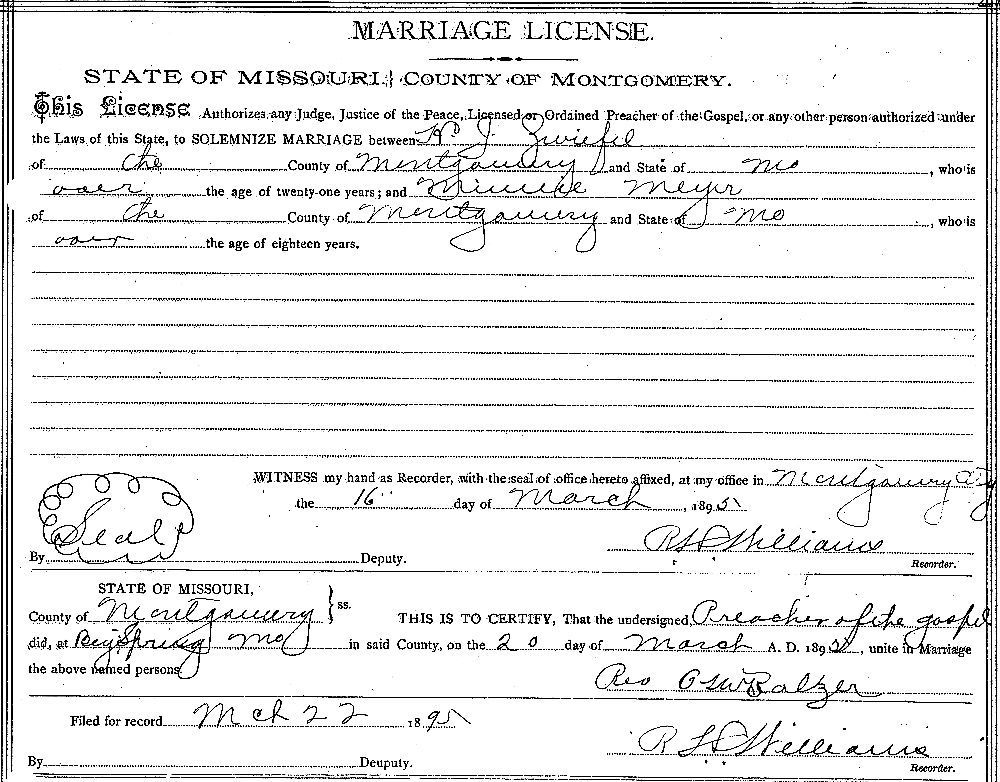 MARRIAGE LICENSE.
STATE OF MISSOURI, COUNTY OF MONTGOMERY.
This License Authorizes any Judge, Justice of the Peace, Licensed or Ordained Preacher of the Gospel, or any other person authorized under
the Laws of this State, to SOLEMNIZE MARRIAGE between H J Zwiefel
of the County of Montgomery and State of Mo, who is
over the age of twenty-one years; and Minnie Meyer
of the County of Montgomery and State of Mo, who is
over the age of eighteen years.
WITNESS my hand as Recorder, with the seal of office hereto affixed, at my office in Montgomery City
the 16" day of March, 1895
Seal
R S Williams
By Deputy. Recorder.
STATE OF MISSOURI,
County of Montgomery } ss. THIS IS TO CERTIFY, That the undersigned, Preacher of the gospel
did, at Big Spring Mo in said County, on the 20 day of March A. D. 1895, unite in Marriage
the above named persons.
Rev Baltzer
Filed for record Mch 22 1895
R S Williams
By Deuputy. Recorder.